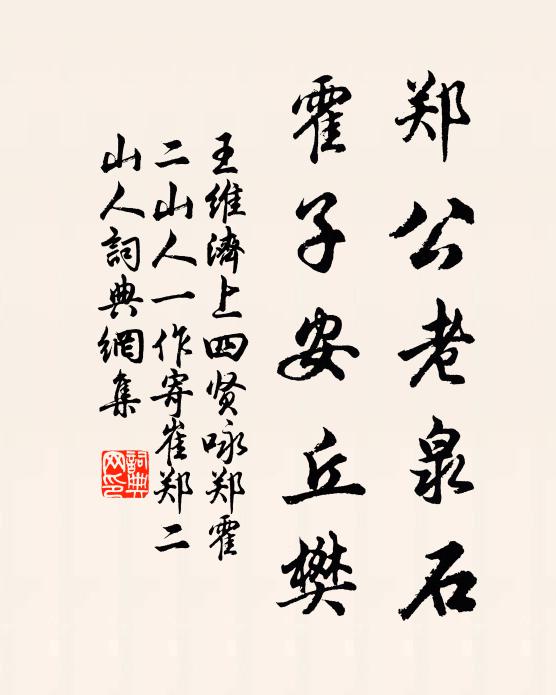 郑公老泉石
霍子安丘樊
王维濟上四贤咏郑霍
二山人一作寄崔郑二
山人詞典網集
詞典
网印